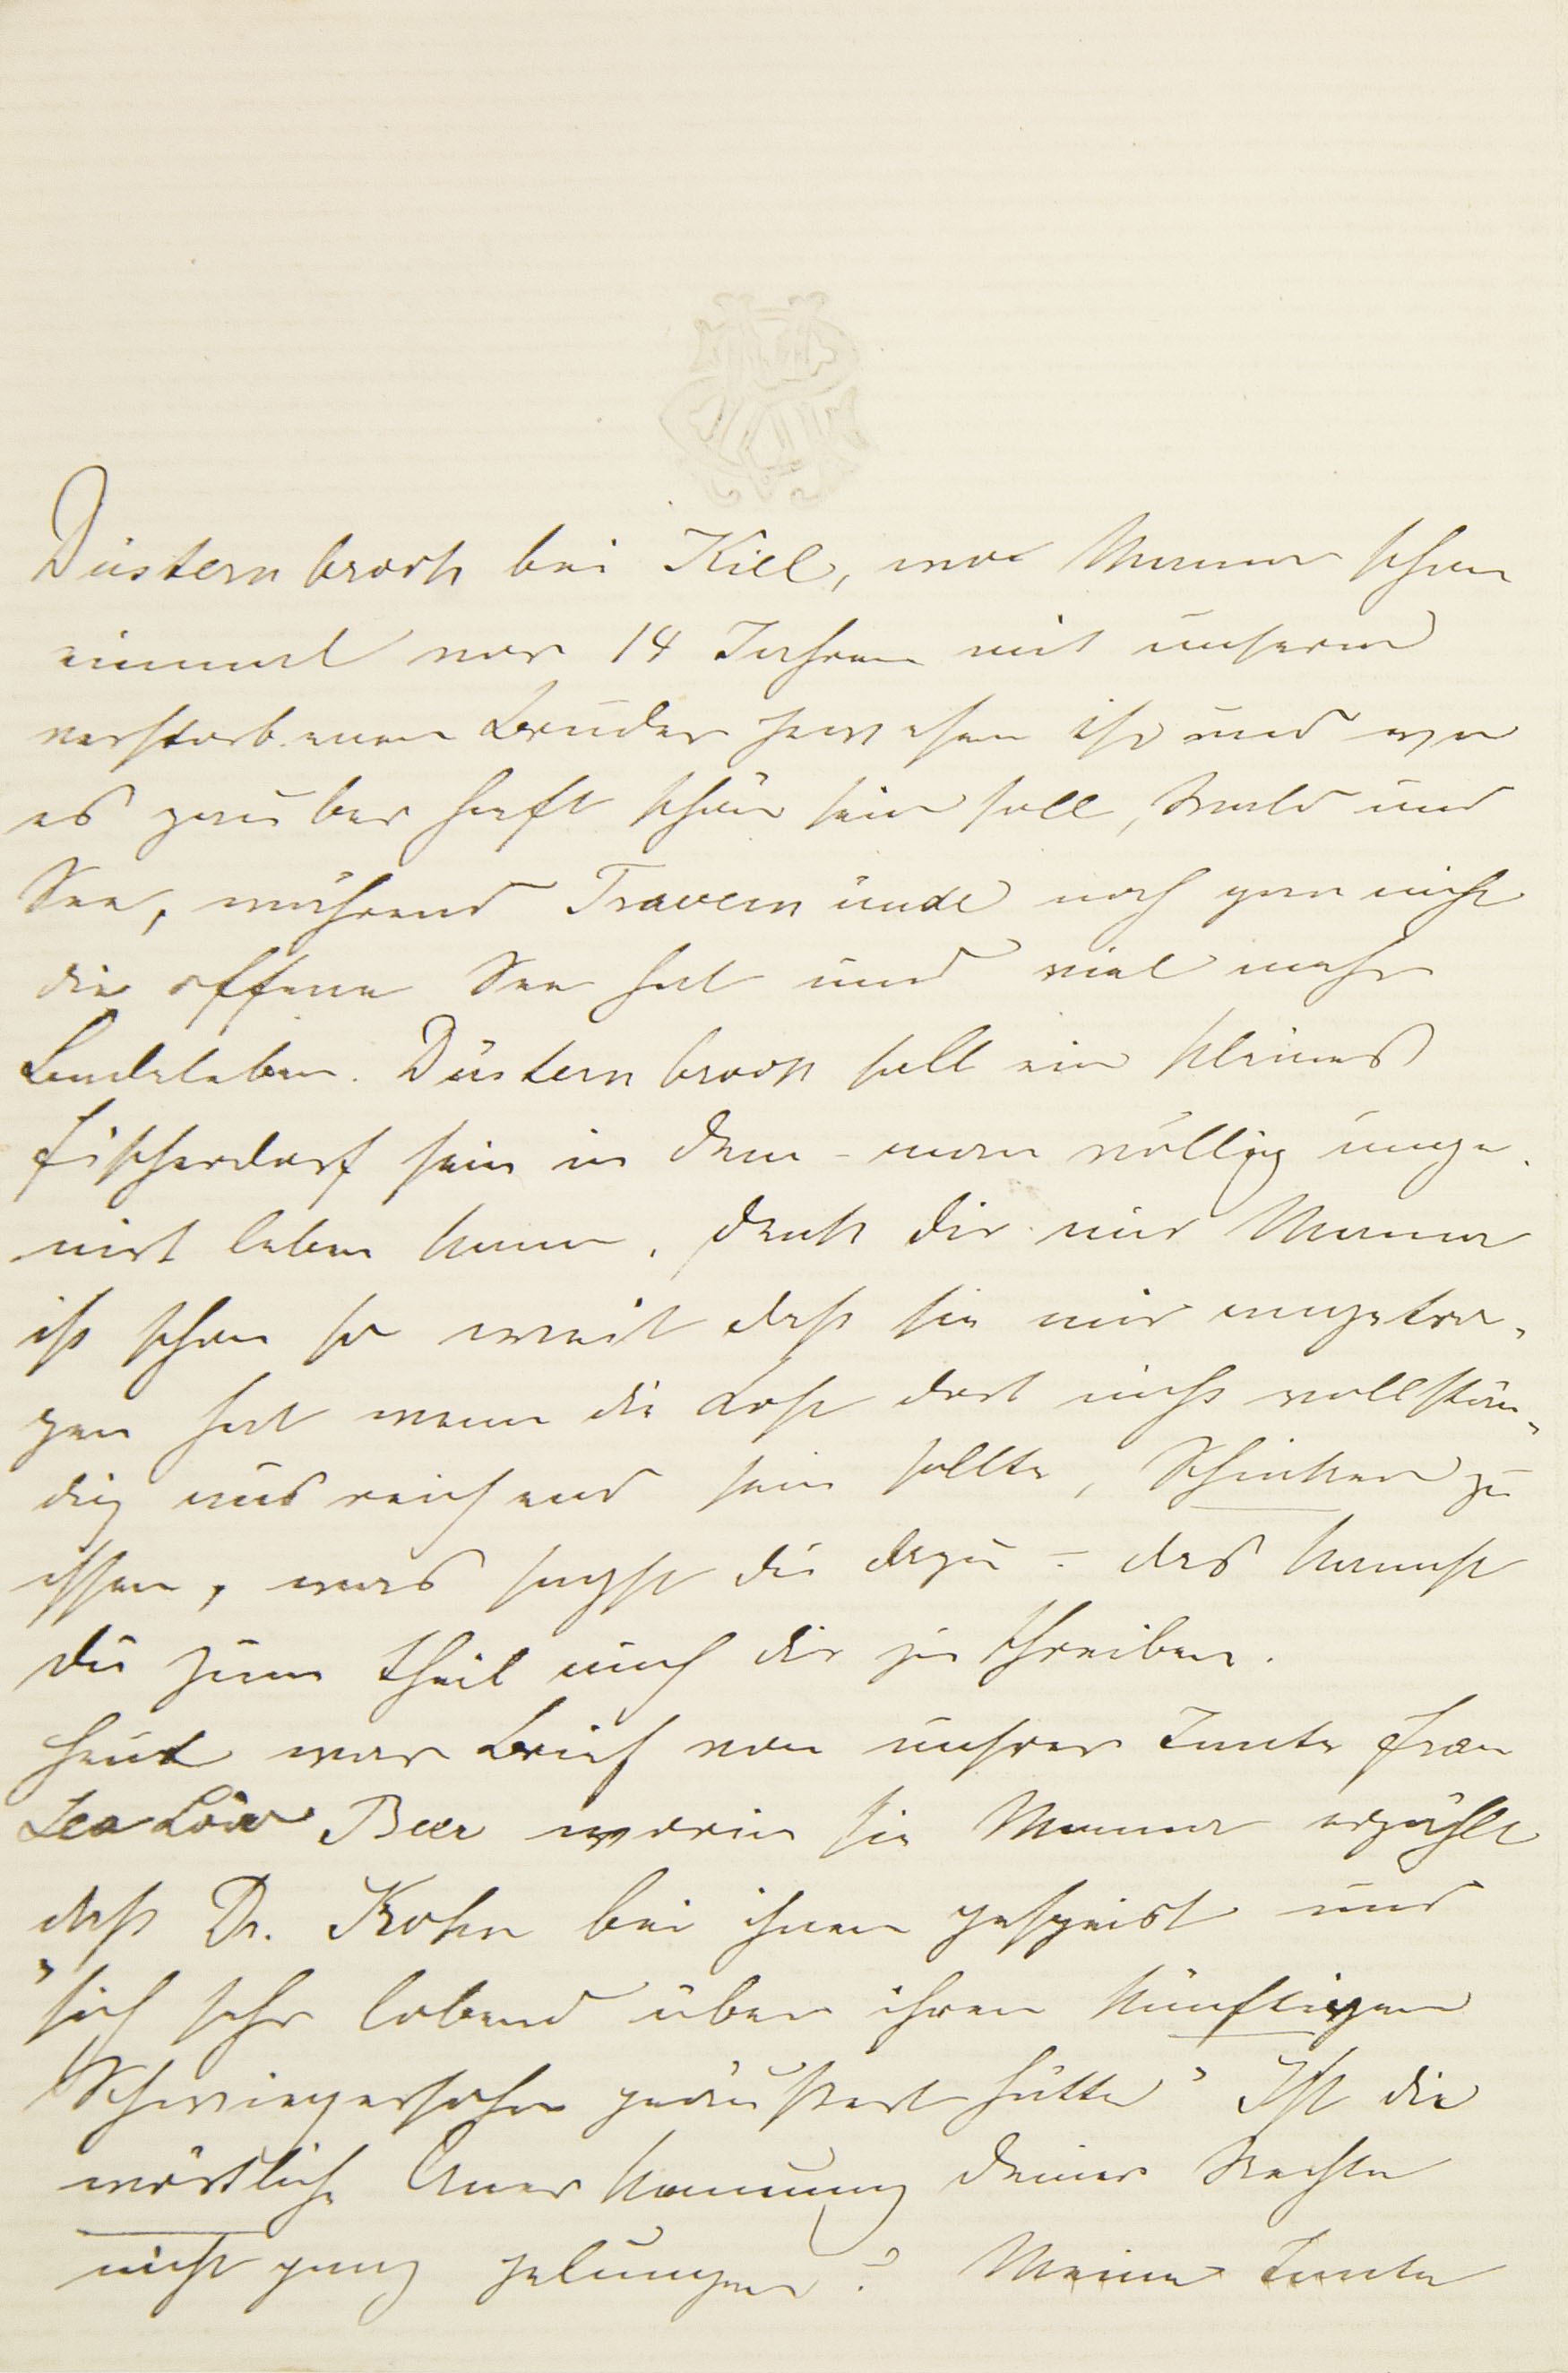 Düsternbrook bei Kiel, wo Mama schon
einmal vor 14 Jahren mit unserm
verstorbenen Bruder gewesen ist und wo
es zauberhaft schön sein soll, Wald und
See, während Travemünde noch gar nicht
die offene See hat und viel mehr
Badeleben. Düsternbrook soll ein kleines
Fischerdorf sein in dem man völlig unge-
nirt leben kann. Denk dir nur Mama
ist schon so weit daß sie mir angetra-
gen hat wenn die Kost dort nicht vollstän-
dig ausreichend sein sollte, Schinken zu
essen, was sagst du dazu – das kannst
du zum theil auch dir zu schreiben.
Heut war Brief von unsrer Tante Frau
Lea Löw Beer worin sie Mama erzählt
daß Dr. Kohn bei ihnen gespeist und
"sich sehr lobend über ihren künftigen
Schwiegersohn geäußert hätte" Ist die
wörtliche Anerkennung deiner Rechte
nicht ganz gelungen? Meine Tante